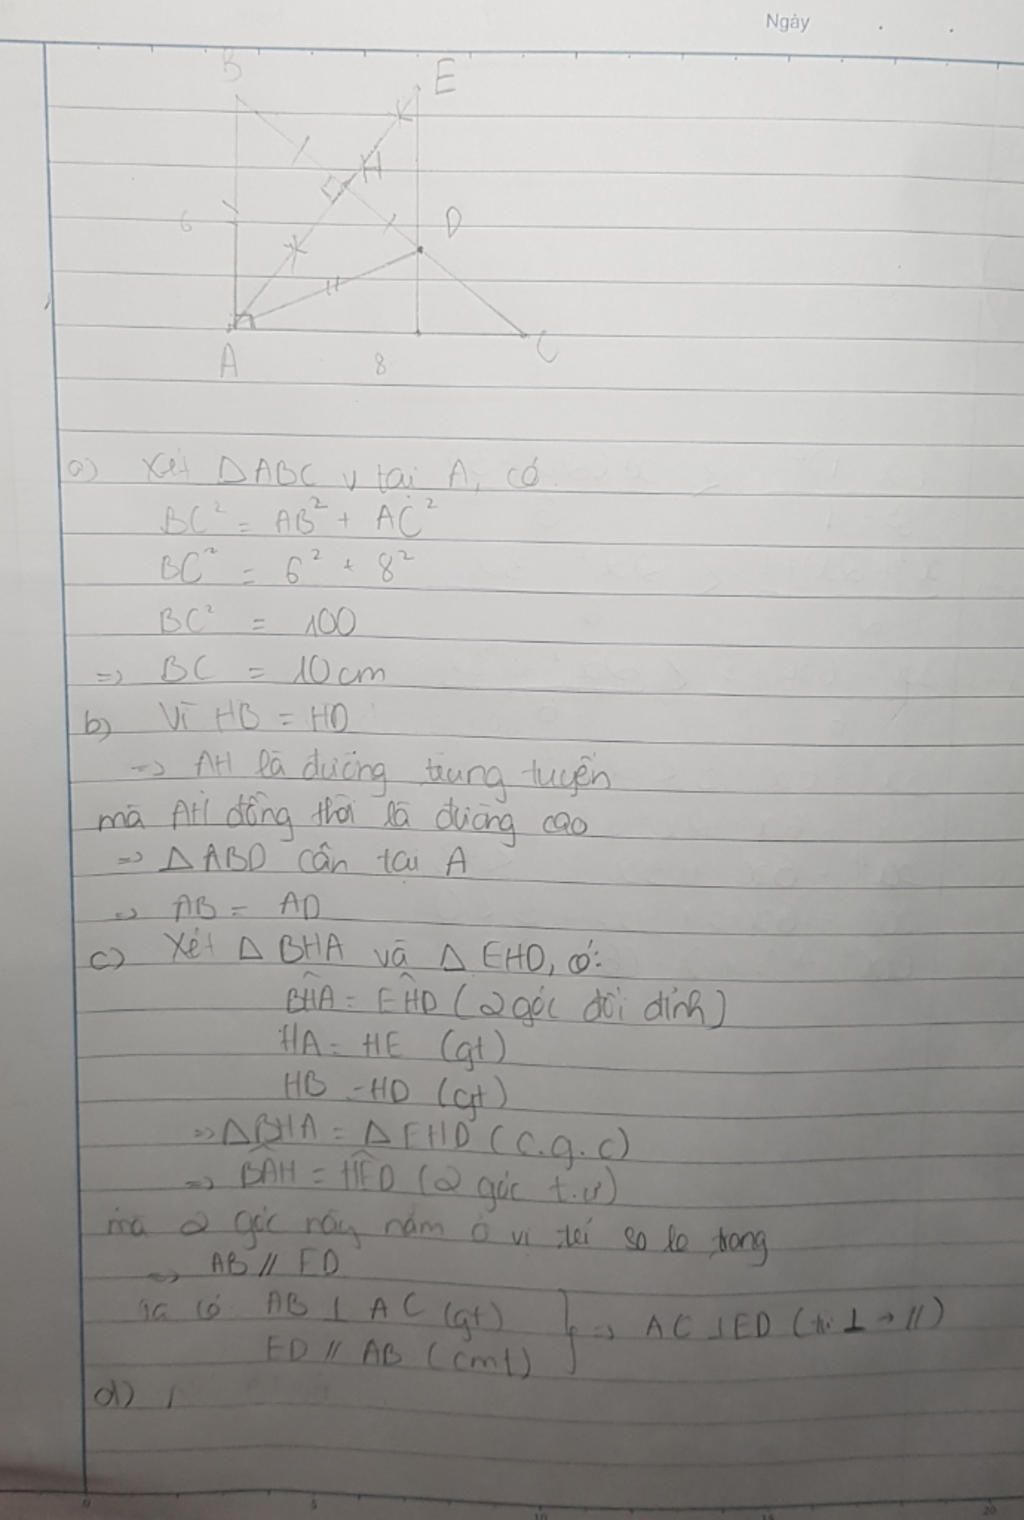 Ngày
B
E
H
6
D
A
8
C
a) Xét △ABC v tại A, có
BC² = AB² + AC²
BC² = 6² + 8²
BC² = 100
=> BC = 10cm
b) Vì HB = HD
=> AH là đường trung tuyến
mà AH đồng thời là đường cao
=> △ABD cân tại A
=> AB = AD
c) Xét △ BHA và △ EHD, có:
BĤA = EĤD (2 góc đối đỉnh)
HA = HE (gt)
HB = HD (gt)
=> △BHA = △EHD (c.g.c)
=> BÂH = HÊD (2 góc t.ư)
mà 2 góc này nằm ở vị trí so le trong
=> AB // ED
Ta có AB ⊥ AC (gt)
ED // AB (cmt) } => AC ⊥ ED (từ ⊥ → //)
d)
0 5 10 15 20